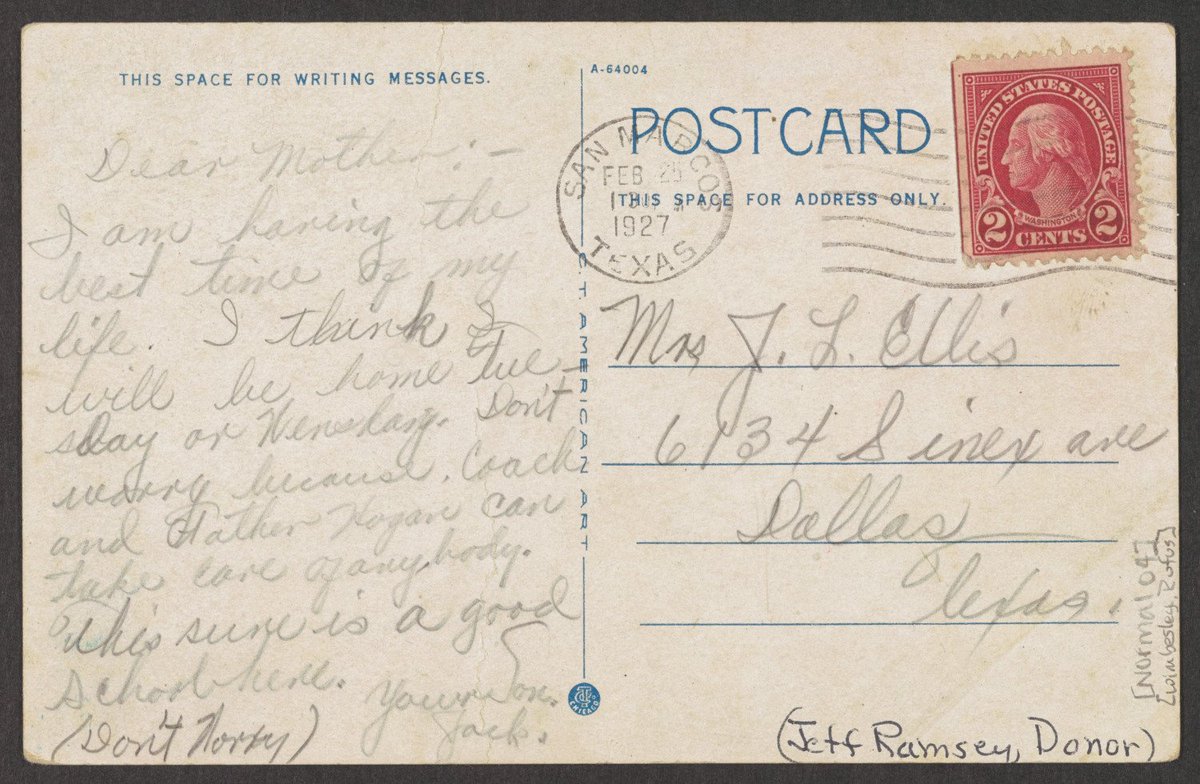 THIS SPACE FOR WRITING MESSAGES.
Dear Mother:-
I am having the
best time of my
life. I think I
will be home Tue-
sday or Wensday. Don't
worry because Coach
and Father Hogan can
take care of anybody.
This sure is a good
school here.
Your son.
Jack.
(Don't Worry)
A-64004
POST CARD
THIS SPACE FOR ADDRESS ONLY.
SAN MARCOS
FEB
1927
TEXAS
UNITED STATES POSTAGE
WASHINGTON
2 CENTS 2
C.T. AMERICAN ART
CHICAGO
Mrs J. L. Ellis
6134 Sinex ave
Dallas
Texas.
[Normal 04]
[Wimbesley, Rufus]
(Jeff Ramsey, Donor)